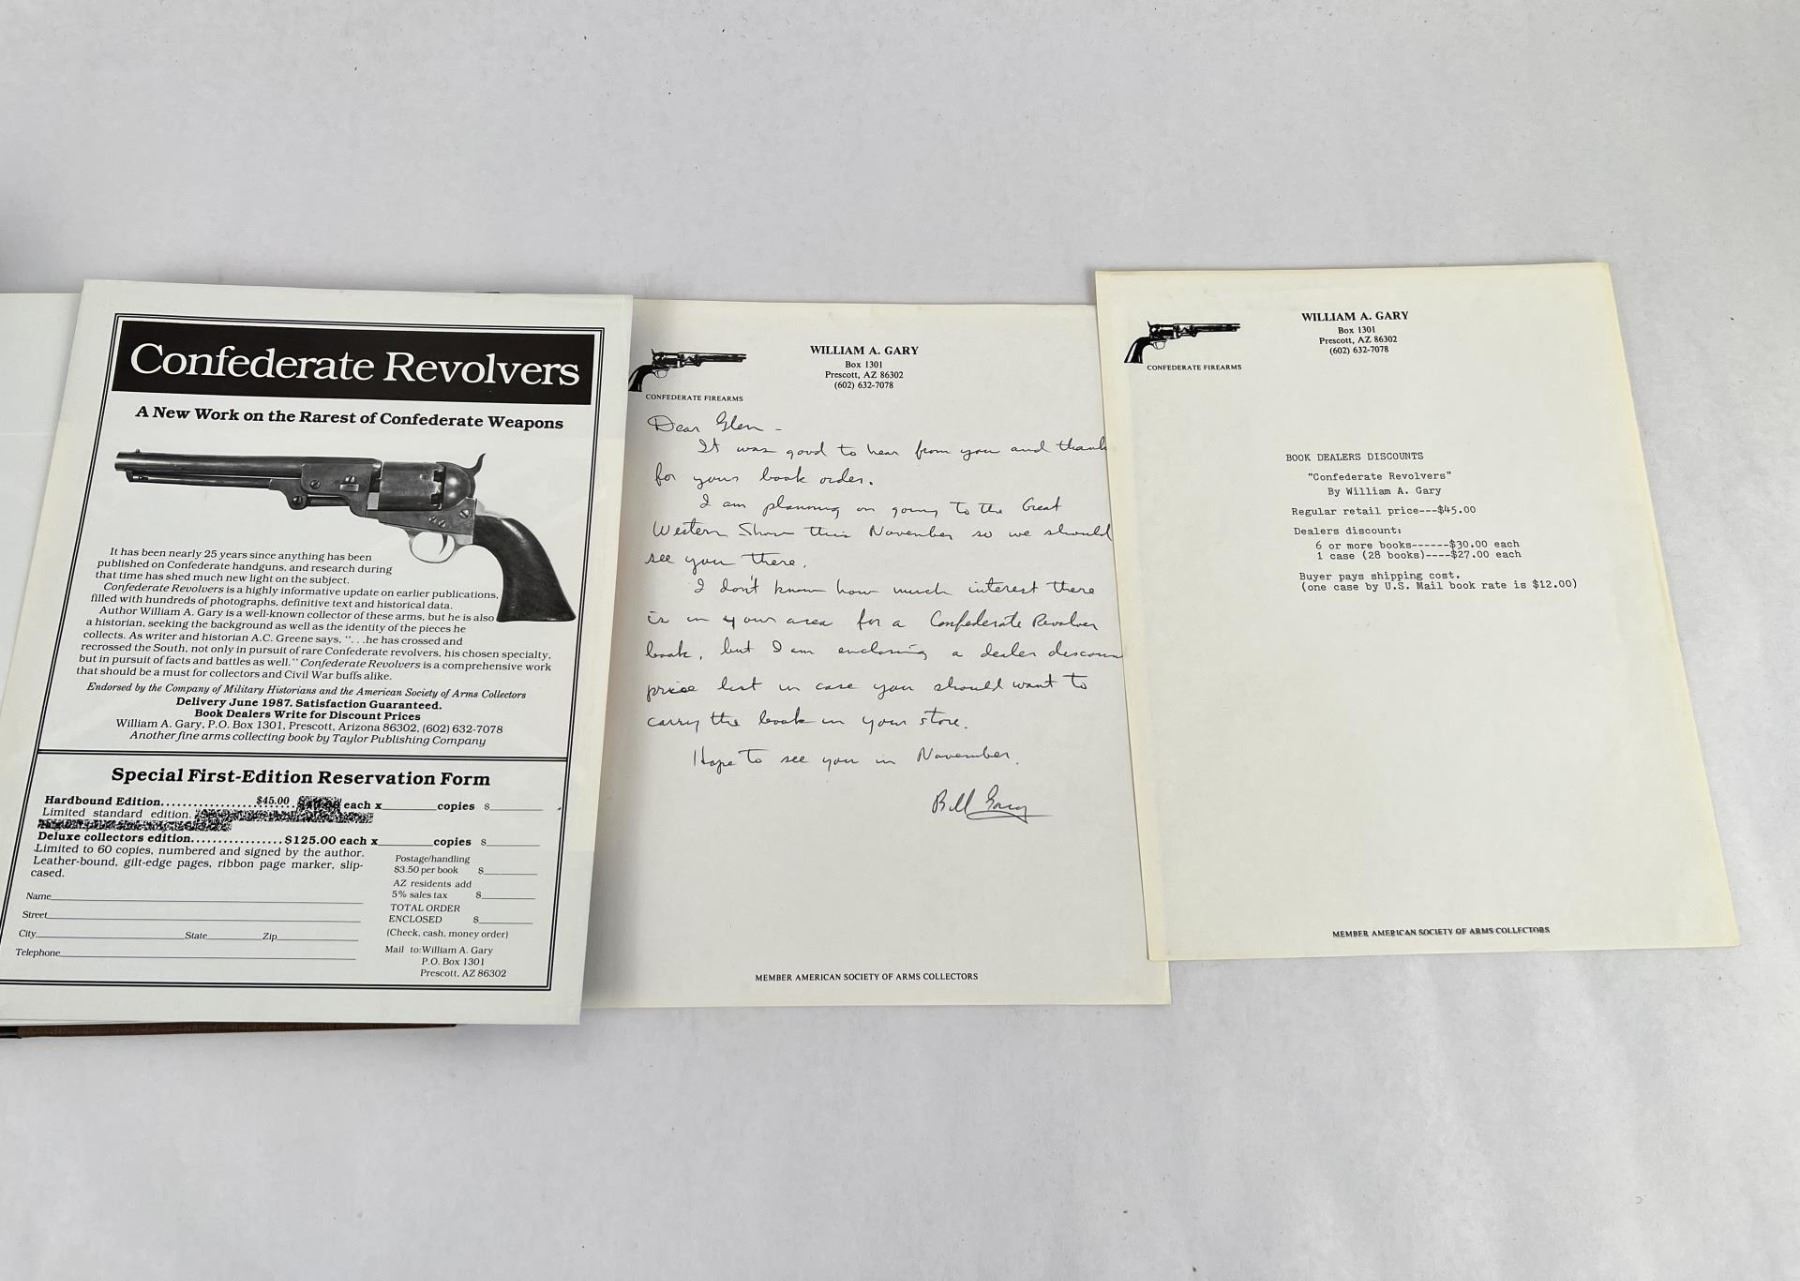 Confederate Revolvers
A New Work on the Rarest of Confederate Weapons
It has been nearly 25 years since anything has been
published on Confederate handguns, and research during
that time has shed much new light on the subject.
Confederate Revolvers is a highly informative update on earlier publications,
filled with hundreds of photographs, definitive text and historical data.
Author William A. Gary is a well-known collector of these arms, but he is also
a historian, seeking the background as well as the identity of the pieces he
collects. As writer and historian A.C. Greene says, "...he has crossed and
recrossed the South, not only in pursuit of rare Confederate revolvers, his chosen specialty,
but in pursuit of facts and battles as well." Confederate Revolvers is a comprehensive work
that should be a must for collectors and Civil War buffs alike.
Endorsed by the Company of Military Historians and the American Society of Arms Collectors
Delivery June 1987. Satisfaction Guaranteed.
Book Dealers Write for Discount Prices
William A. Gary, P.O. Box 1301, Prescott, Arizona 86302, (602) 632-7078
Another fine arms collecting book by Taylor Publishing Company
Special First-Edition Reservation Form
Hardbound Edition.................$45.00 each x______copies $______
Limited standard edition.
Deluxe collectors edition.................$125.00 each x______copies $______
Limited to 60 copies, numbered and signed by the author.
Leather-bound, gilt-edge pages, ribbon page marker, slip-
cased.
Postage/handling
$3.50 per book $______
AZ residents add
5% sales tax $______
TOTAL ORDER
ENCLOSED $______
(Check, cash, money order)
Mail to: William A. Gary
P.O. Box 1301
Prescott, AZ 86302
Name
Street
City State Zip
Telephone
WILLIAM A. GARY
Box 1301
Prescott, AZ 86302
(602) 632-7078
CONFEDERATE FIREARMS
Dear Glen -
It was good to hear from you and thank
for your book order.
I am planning on going to the Great
Western Show this November so we should
see you there.
I don't know how much interest there
is in your area for a Confederate Revolver
book, but I am enclosing a dealer discoun
price list in case you should want to
carry the book in your store.
Hope to see you in November.
Bill Gary
MEMBER AMERICAN SOCIETY OF ARMS COLLECTORS
WILLIAM A. GARY
Box 1301
Prescott, AZ 86302
(602) 632-7078
CONFEDERATE FIREARMS
BOOK DEALERS DISCOUNTS
"Confederate Revolvers"
By William A. Gary
Regular retail price---$45.00
Dealers discount:
6 or more books------$30.00 each
1 case (28 books)----$27.00 each
Buyer pays shipping cost.
(one case by U.S. Mail book rate is $12.00)
MEMBER AMERICAN SOCIETY OF ARMS COLLECTORS